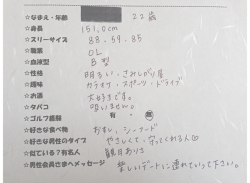 ☆なまえ・年齢 22歳
☆身長 151.0cm
☆スリーサイズ 88.59.85
☆職業 OL
☆血液型 B型
☆性格 明るい、さみしがり屋
☆趣味 カラオケ・スポーツ・ドライブ
☆お酒 大好きです。
☆タバコ 吸いません。
☆ゴルフ経験 有・無
☆好きな食べ物 おすし、シーフード
☆好きな男性のタイプ やさしくて、守ってくれる人
☆似ている?有名人 観月ありさ
☆男性会員さまへメッセージ 楽しいデートに連れていって下さい。